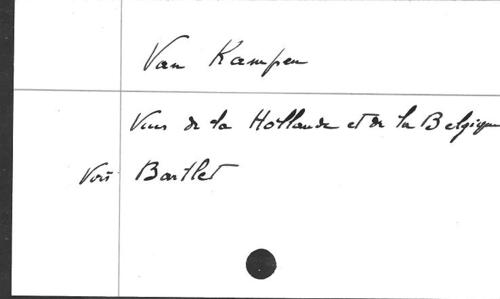 Van Kampen
Vues de la Hollande et de la Belgique
Voir Bartlet